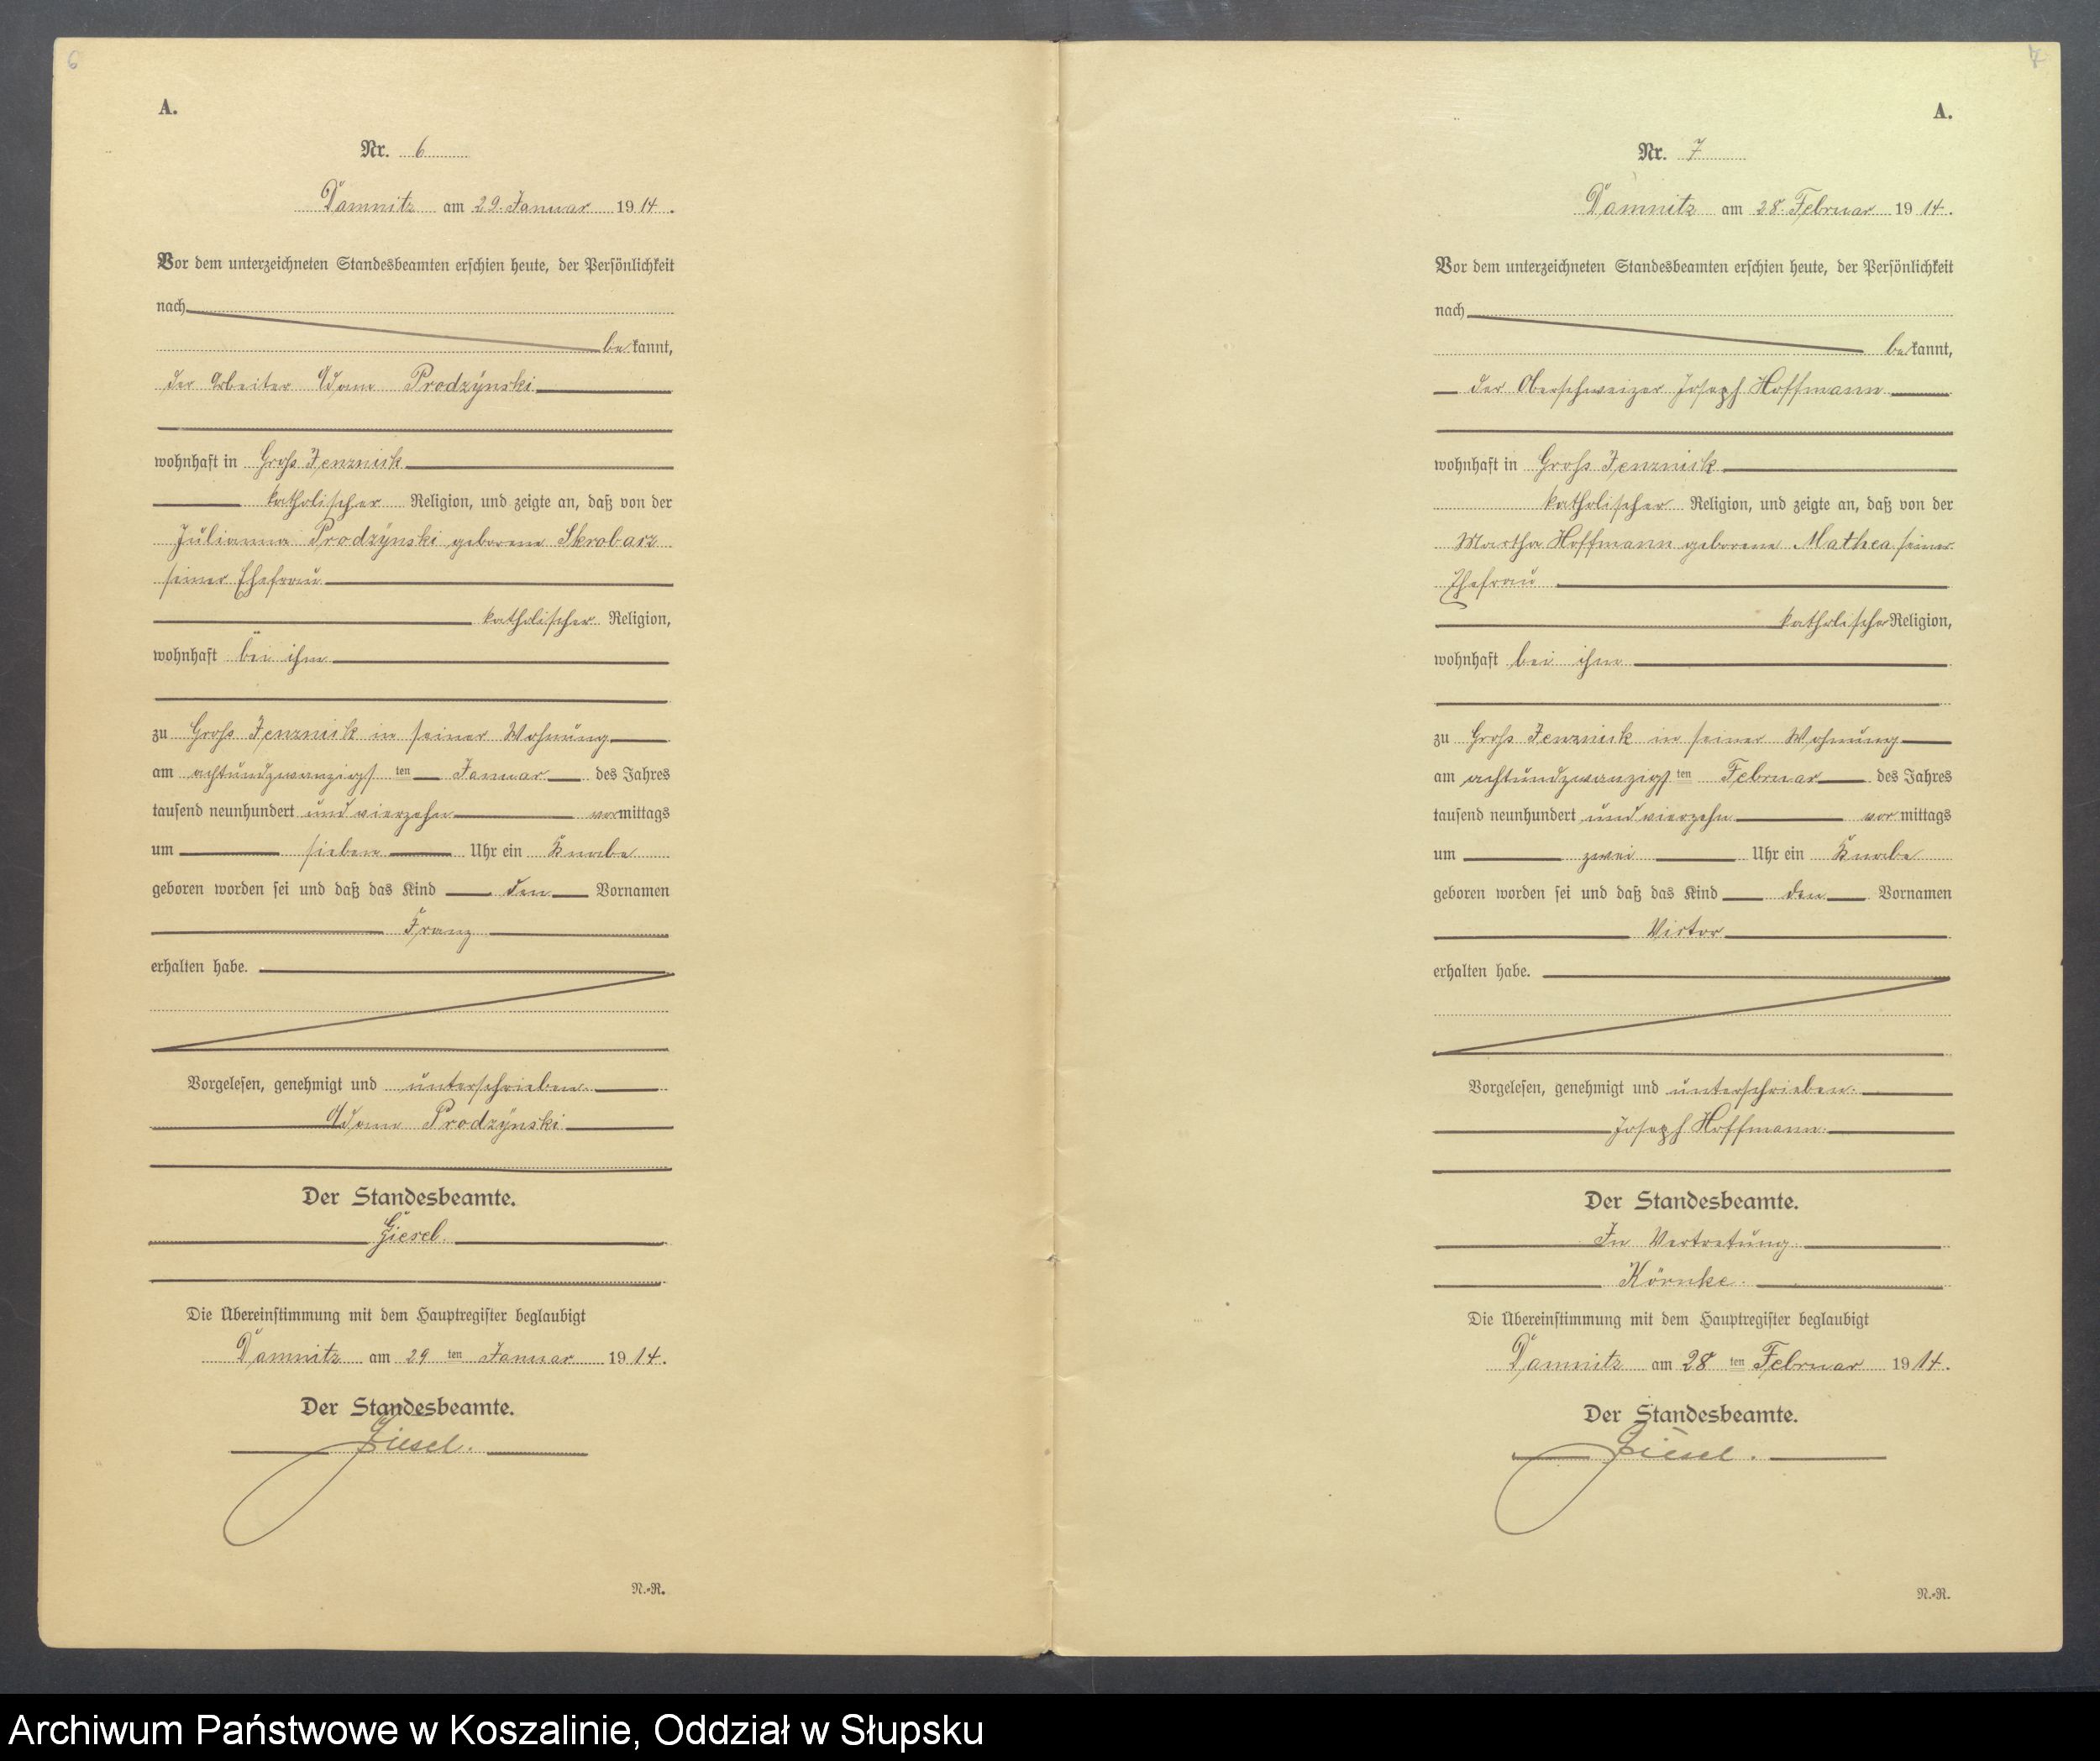 6
A.
Nr. 6
Damnitz am 29. Januar 1914.
Vor dem unterzeichneten Standesbeamten erschien heute, der Persönlichkeit
nach
bekannt,
der Arbeiter Adam Prodzynski
wohnhaft in Groß Jenznick
katholischer Religion, und zeigte an, daß von der
Julianna Prodzynski geborene Skrobarz
seiner Ehefrau
katholischer Religion,
wohnhaft bei ihm
zu Groß Jenznick in seiner Wohnung
am achtundzwanzigsten Januar des Jahres
tausend neunhundert und vierzehn vormittags
um sieben Uhr ein Knabe
geboren worden sei und daß das Kind den Vornamen
Franz
erhalten habe.
Vorgelesen, genehmigt und unterschrieben.
Adam Prodzynski
Der Standesbeamte.
Giesel.
Die Übereinstimmung mit dem Hauptregister beglaubigt
Damnitz am 29ten Januar 1914.
Der Standesbeamte.
Giesel.
N.-R.
7
A.
Nr. 7
Damnitz am 28. Februar 1914.
Vor dem unterzeichneten Standesbeamten erschien heute, der Persönlichkeit
nach
bekannt,
der Oberschweizer Joseph Hoffmann
wohnhaft in Groß Jenznick
katholischer Religion, und zeigte an, daß von der
Martha Hoffmann geborene Mathea seiner
Ehefrau
katholischer Religion,
wohnhaft bei ihm
zu Groß Jenznick in seiner Wohnung
am achtundzwanzigsten Februar des Jahres
tausend neunhundert und vierzehn vormittags
um zwei Uhr ein Knabe
geboren worden sei und daß das Kind den Vornamen
Victor
erhalten habe.
Vorgelesen, genehmigt und unterschrieben.
Joseph Hoffmann.
Der Standesbeamte.
In Vertretung
Körnke.
Die Übereinstimmung mit dem Hauptregister beglaubigt
Damnitz am 28ten Februar 1914.
Der Standesbeamte.
Giesel.
N.-R.
Archiwum Państwowe w Koszalinie, Oddział w Słupsku